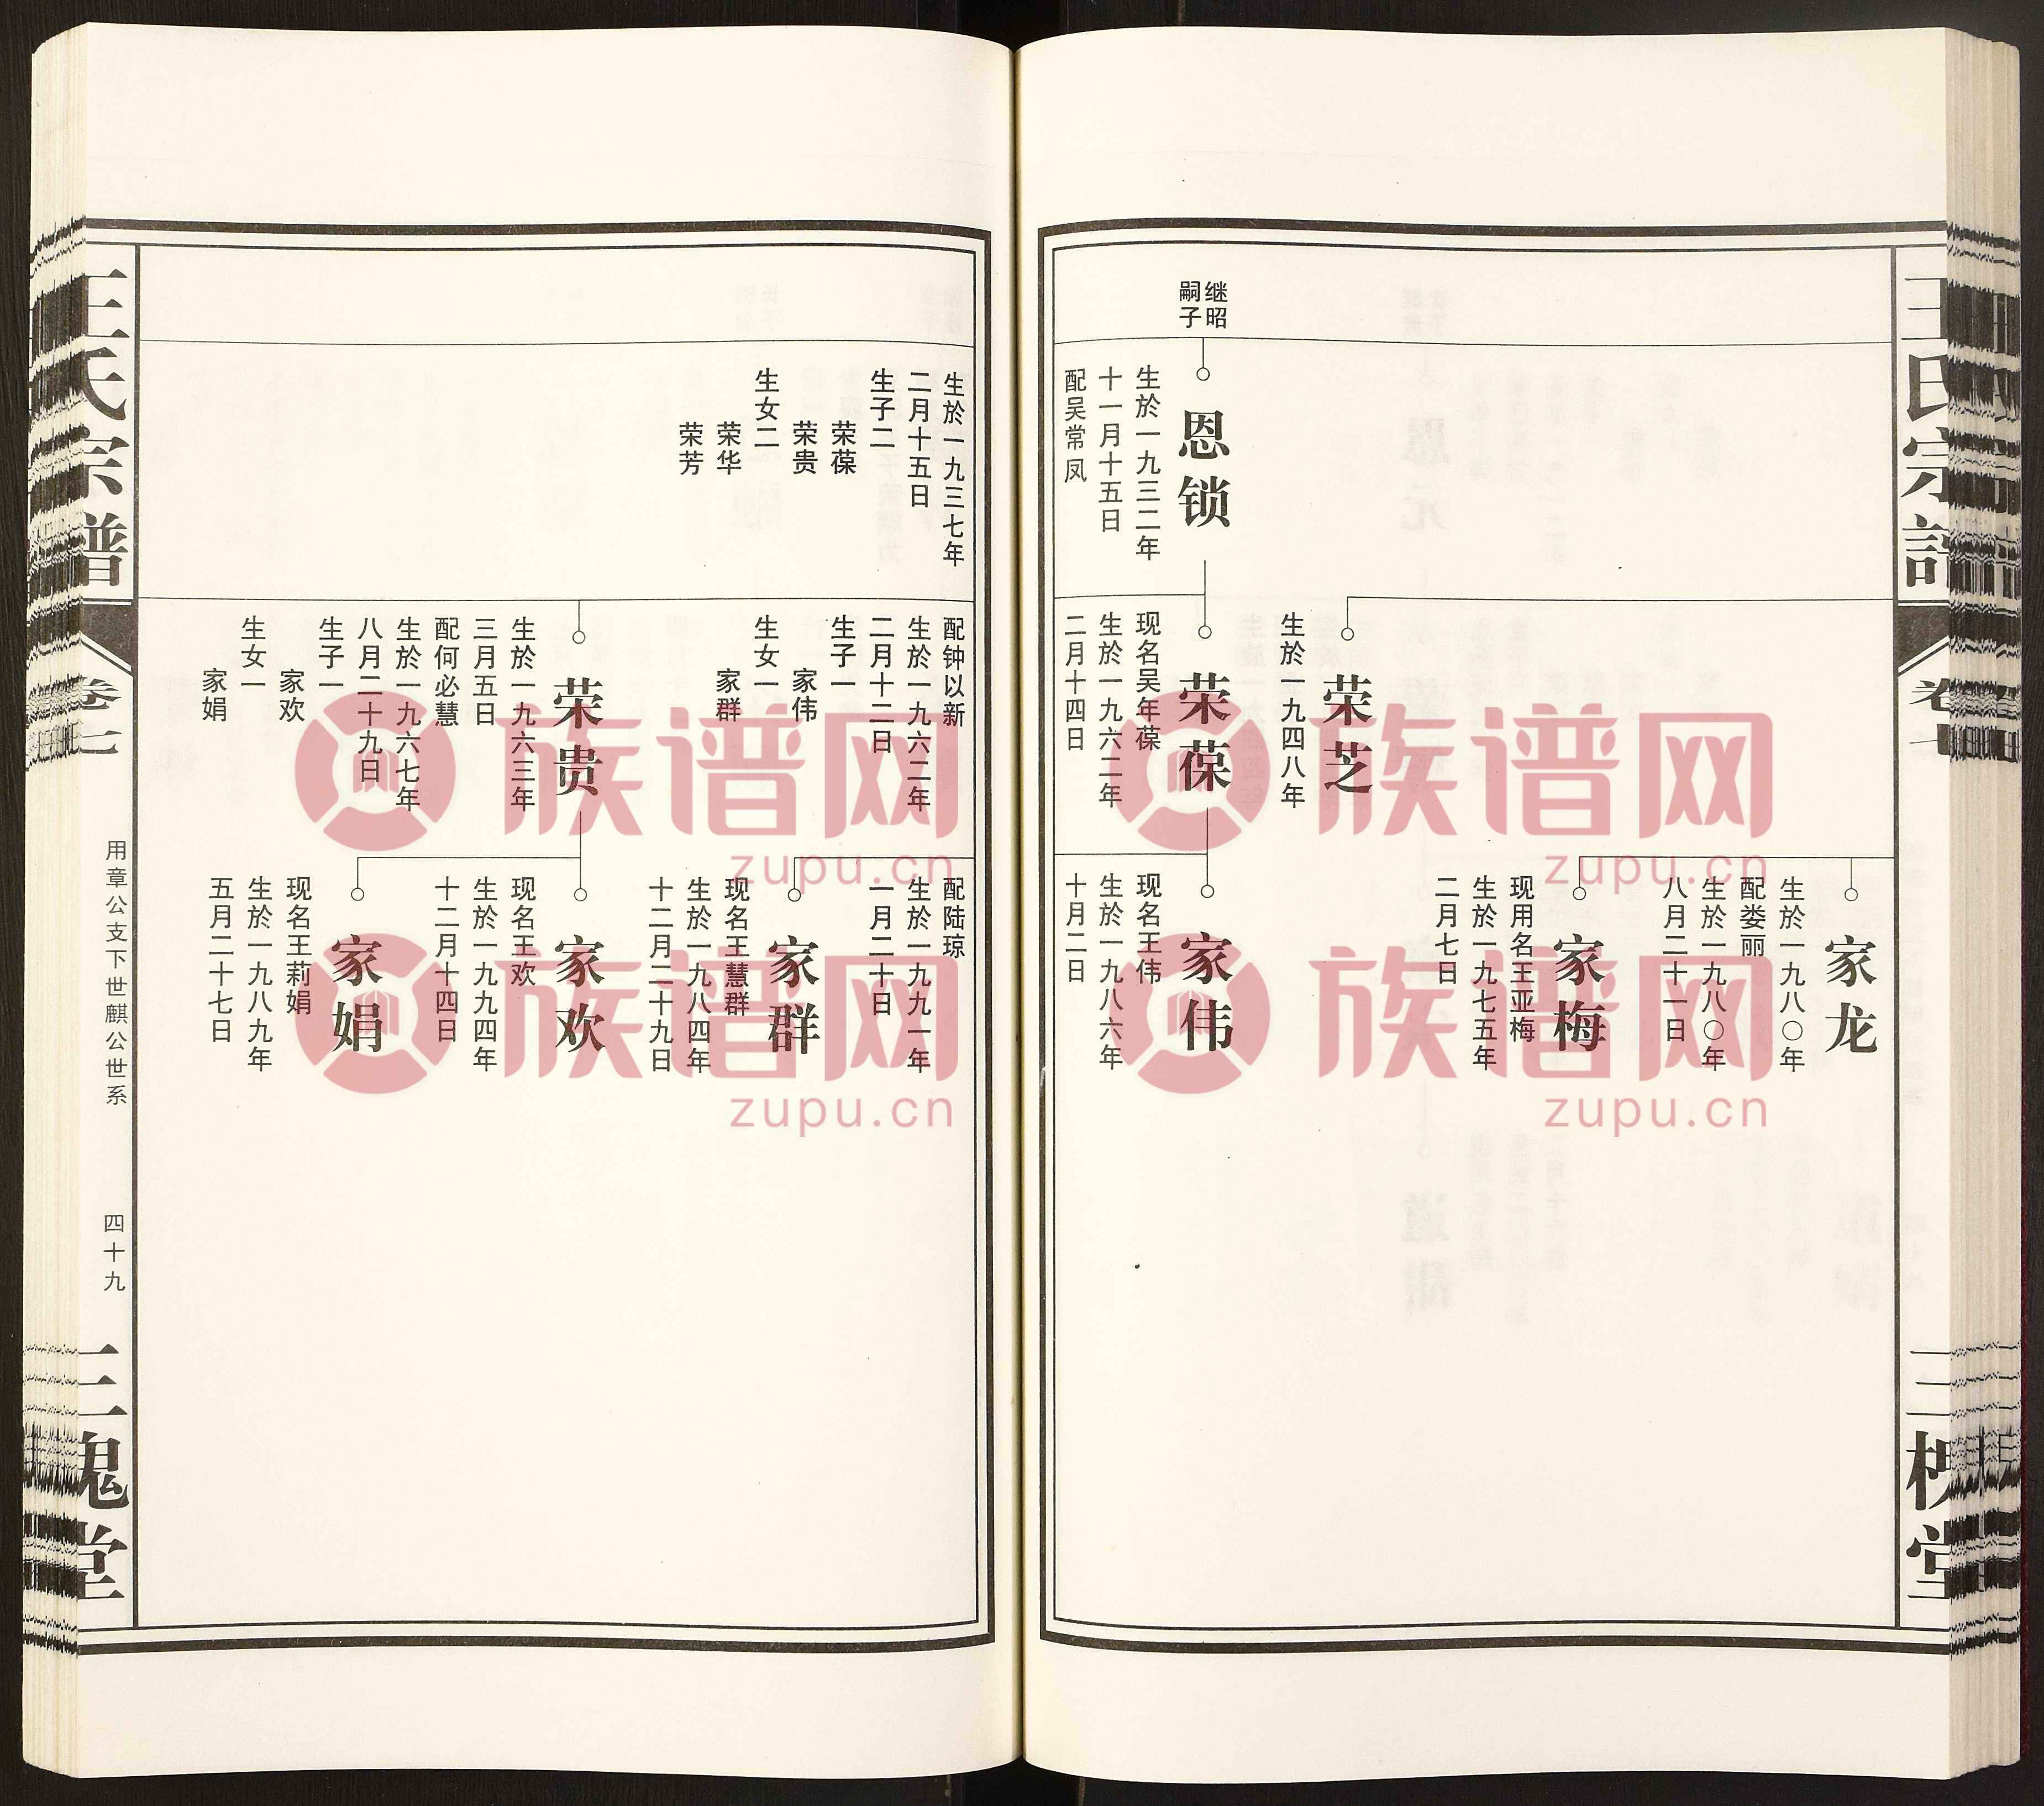 王氏宗譜
卷七
三槐堂
继昭
嗣子
恩锁
生於一九三二年
十一月十五日
配吴常凤
荣芝
生於一九四八年
荣葆
现名吴年葆
生於一九六二年
二月十四日
家龙
生於一九八〇年
配娄丽
生於一九八〇年
八月二十一日
家梅
现用名王亚梅
生於一九七五年
二月七日
家伟
现名王伟
生於一九八六年
十月二日
生於一九三七年
二月十五日
生子二
荣葆
荣贵
生女二
荣华
荣芳
配钟以新
生於一九六二年
二月十二日
生子一
家伟
生女一
家群
荣贵
生於一九六三年
三月五日
配何必慧
生於一九六七年
八月二十九日
生子一
家欢
生女一
家娟
配陆琼
生於一九九一年
一月二十日
家群
现名王慧群
生於一九八四年
十二月二十九日
家欢
现名王欢
生於一九九四年
十二月十四日
家娟
现名王莉娟
生於一九八九年
五月二十七日
王氏宗譜
卷七
用章公支下世麒公世系
四十九
三槐堂
族谱网
zupu.cn
族谱网
zupu.cn
族谱网
zupu.cn
族谱网
zupu.cn